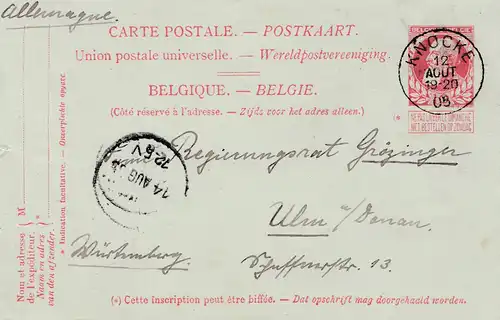 Allemagne
CARTE POSTALE. — POSTKAART.
Union postale universelle. — Wereldpostvereeniging.
BELGIQUE. — BELGIE.
(Côté réservé à l'adresse. — Zijds voor het adres alleen.)
KNOCKE
12
AOUT
19-20
08
NE PAS LIVRER LE DIMANCHE
NIET BESTELLEN OP ZONDAG
(*
14 AUG
12-6 V
Regierungsrat Grözinger
Ulm a/Donau
Württemberg
Schaffnerstr. 13.
(*) Cette inscription peut être biffée. — Dat opschrift mag doorgehaald worden.
Nom et adresse
de l'expéditeur.
Naam en adres
van den afzender.
M
)*
* Indication facultative. — Onverplichte opgave.